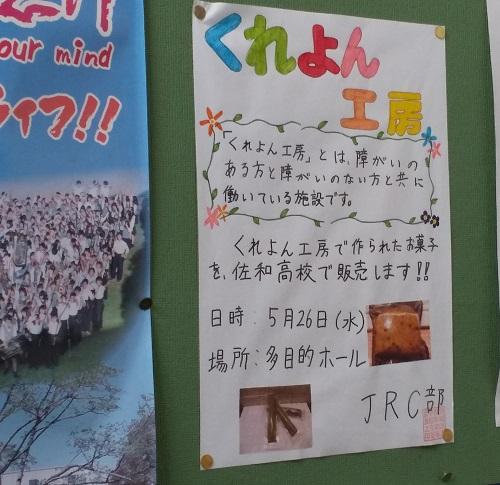 our mind
ライフ!!
くれよん
工房
「くれよん工房」とは、障がいの
ある方と障がいのない方と共に
働いている施設です。
くれよん工房で作られたお菓子
を、佐和高校で販売します!!
日時:5月26日(水)
場所:多目的ホール
JRC部